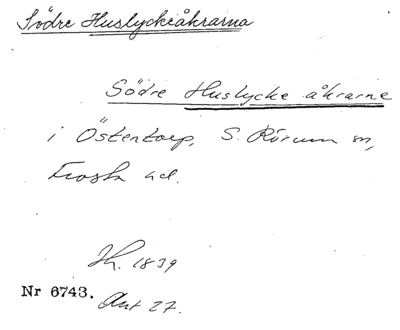 Södre Huslyckeåkrarna
Södre Huslycke åkrarne
i Östentorp, S. Rörum sn,
Frosta hd.
Jh. 1839
Nr 6743. Akt 27.